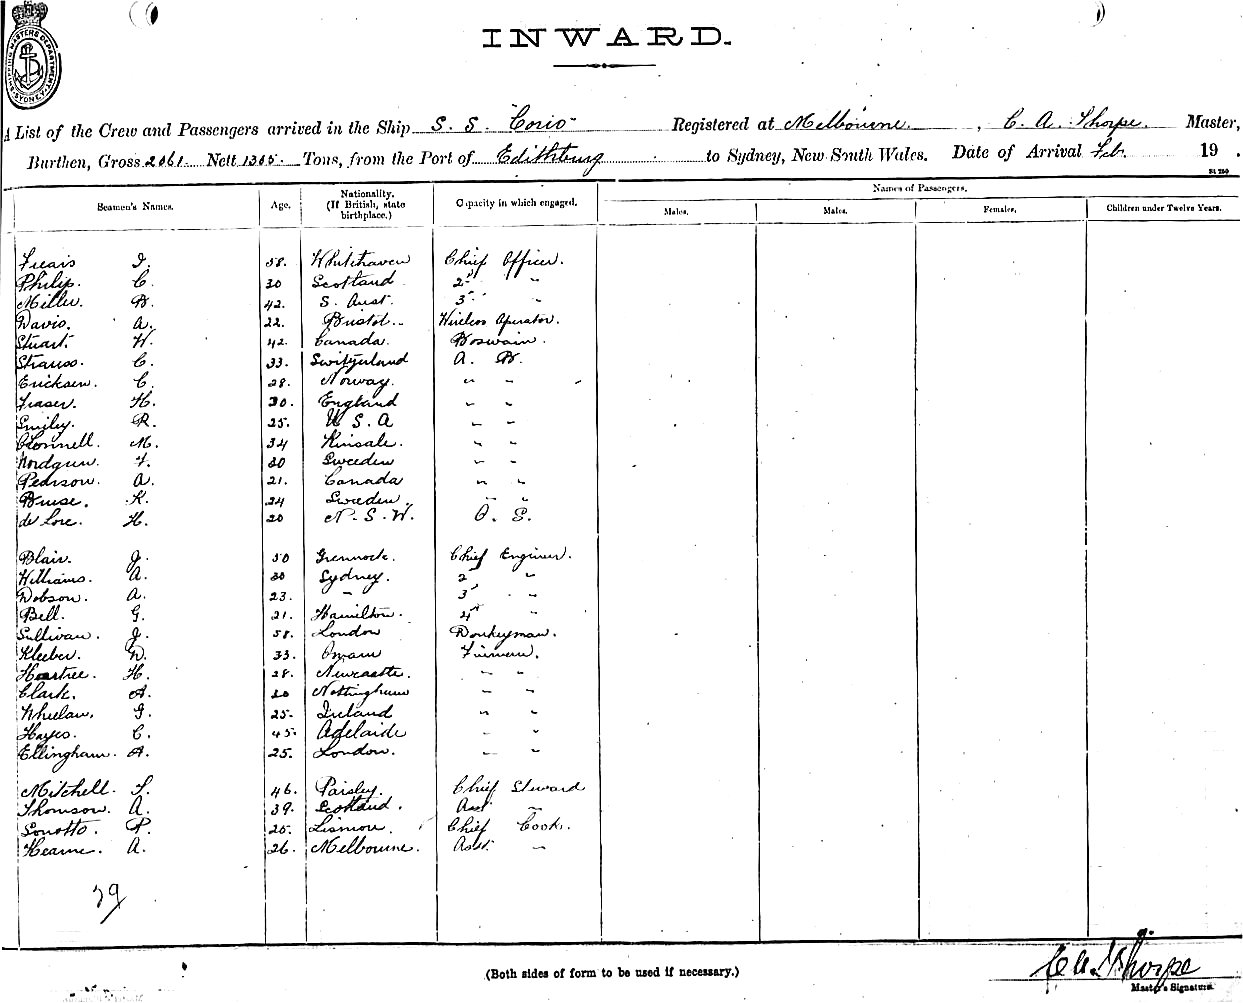 SHIPPING MASTERS DEPARTMENT SYDNEY
INWARD.
A List of the Crew and Passengers arrived in the Ship S. S. Corio Registered at Melbourne, C. A. Thorpe. Master,
Burthen, Gross 2061 Nett 1305 Tons, from the Port of Edithburg to Sydney, New South Wales. Date of Arrival Feb. 19 .
Names of Passengers.
Seamen's Names. Age. Nationality. (If British, state birthplace.) Capacity in which engaged. Males. Males. Females. Children under Twelve Years.
J. 58. Whitehaven Chief Officer.
Philip. C. 30 Scotland 2nd "
Miller. B. 42. S. Aust. 3rd "
Davis. A. 22. Bristol. Wireless Operator.
Stuart. W. 42. Canada. Boswain.
Strauss. C. 33. Switzerland A. B.
Ericksen. C. 28. Norway. " "
Fraser. H. 30. England " "
Smiley. R. 25. U S. A " "
O'Connell. M. 34 Kinsale. " "
F. 30 Sweeden " "
Pearson. A. 21. Canada " "
K. 24 Sweeden. " "
de Lore. H. 20 N. S. W. O. S.
Blair. J. 50 Greenock. Chief Engineer.
Williams. A. 30 Sydney. 2 "
Dobson. A. 23. " 3rd "
Bell. G. 21. Hamilton. 4th "
Sullivan. J. 58. London Donkeyman.
Kleeber. D. 33. Firemen.
H. 28. Newcastle. " "
Clark. A. 20 Nottingham " "
Whelan. J. 25. Ireland " "
Hayes. C. 45. Adelaide " "
Ellingham. A. 25. London. " "
Mitchell. S. 46. Paisley. Chief Steward
Thomson. A. 39. Scotland. Asst "
P. 25. Lismore. Chief Cook.
Hearne. A. 26. Melbourne. Asst. "
29
(Both sides of form to be used if necessary.)
C A Thorpe
Master's Signature.